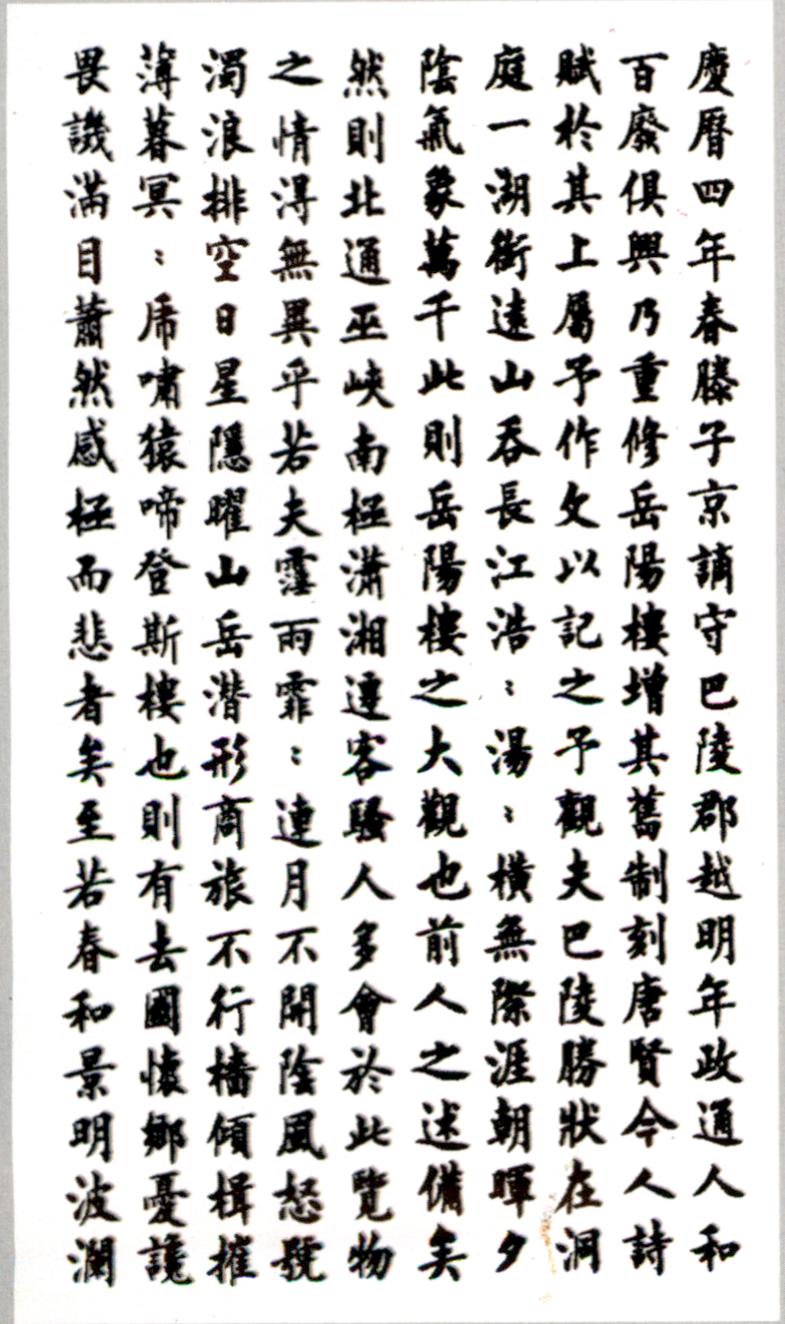 慶曆四年春滕子京謫守巴陵郡越明年政通人和
百廢俱興乃重修岳陽樓增其舊制刻唐賢今人詩
賦於其上屬予作文以記之予觀夫巴陵勝狀在洞
庭一湖銜遠山吞長江浩〻湯〻橫無際涯朝暉夕
陰氣象萬千此則岳陽樓之大觀也前人之述備矣
然則北通巫峽南極瀟湘遷客騷人多會於此覽物
之情得無異乎若夫霪雨霏〻連月不開陰風怒號
濁浪排空日星隱曜山岳潛形商旅不行檣傾楫摧
薄暮冥〻虎嘯猿啼登斯樓也則有去國懷鄉憂讒
畏譏滿目蕭然感極而悲者矣至若春和景明波瀾